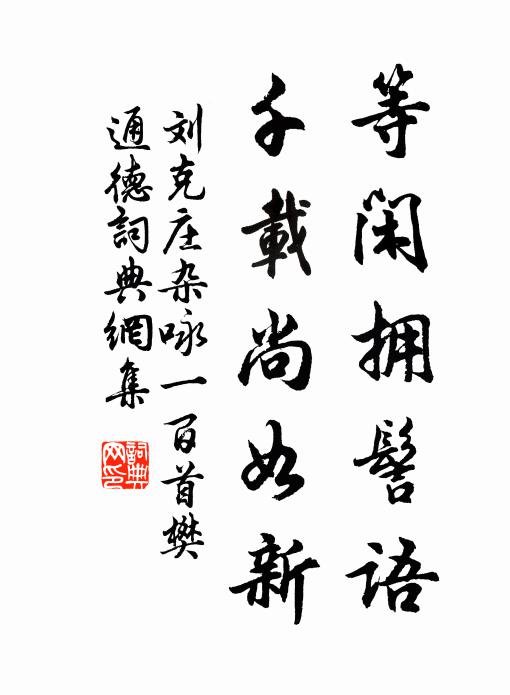 等闲拥髻语
千載尚如新
刘克庄杂咏一百首樊
通德詞典網集
詞典网印